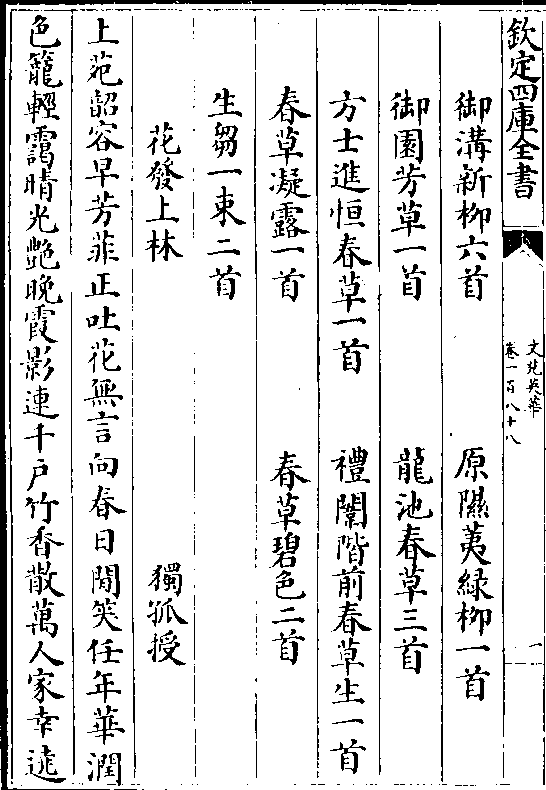 欽定四庫全書
文苑英華
卷一百八十八
一
御溝新柳六首　原隰荑綠柳一首
御園芳草一首　龍池春草三首
方士進恒春草一首　禮闈階前春草生一首
春草凝露一首　春草碧色二首
生芻一束二首
花發上林　獨孤授
上苑韶容早芳菲正吐花無言向春日閒笑任年華潤
色籠輕靄晴光艶晚霞影連千戸竹香散萬人家幸遶